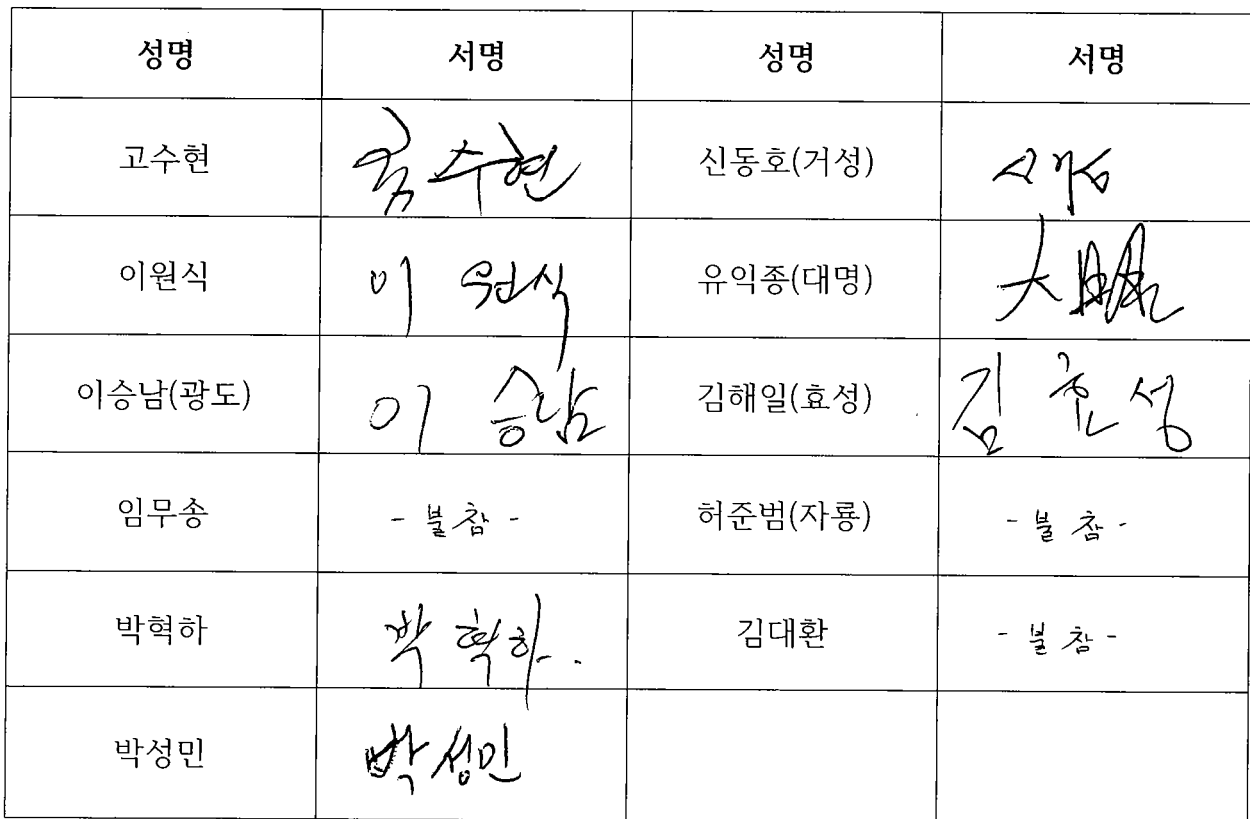 성명 서명 성명 서명
고수현 수현 신동호(거성)
이원식 이 원식 유익종(대명) 大
이승남(광도) 이 승남 김해일(효성) 김 효성
임무송 - 불참 - 허준범(자룡) - 불참 -
박혁하 박 혁하.. 김대환 - 불참 -
박성민 박성민